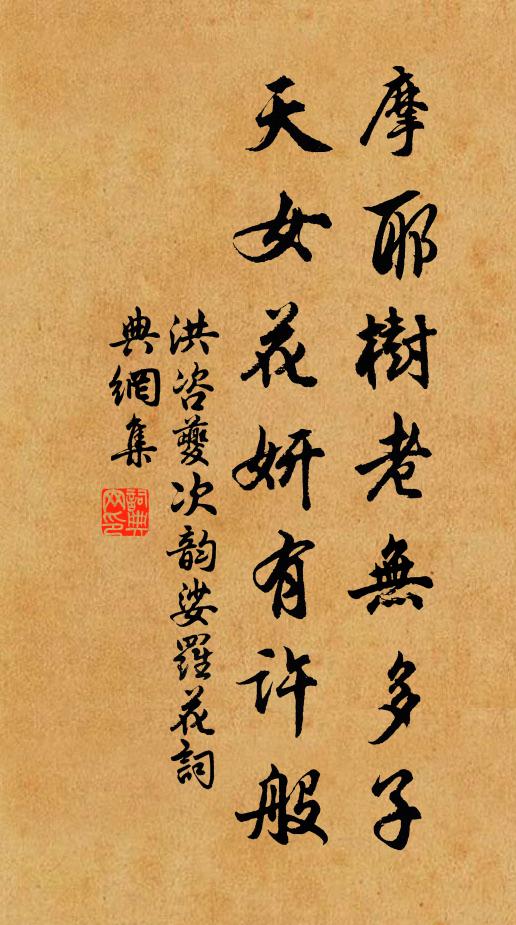 摩耶樹老無多子
天女花妍有許般
洪咨夔次韵娑羅花詞
典網集
詞典網印